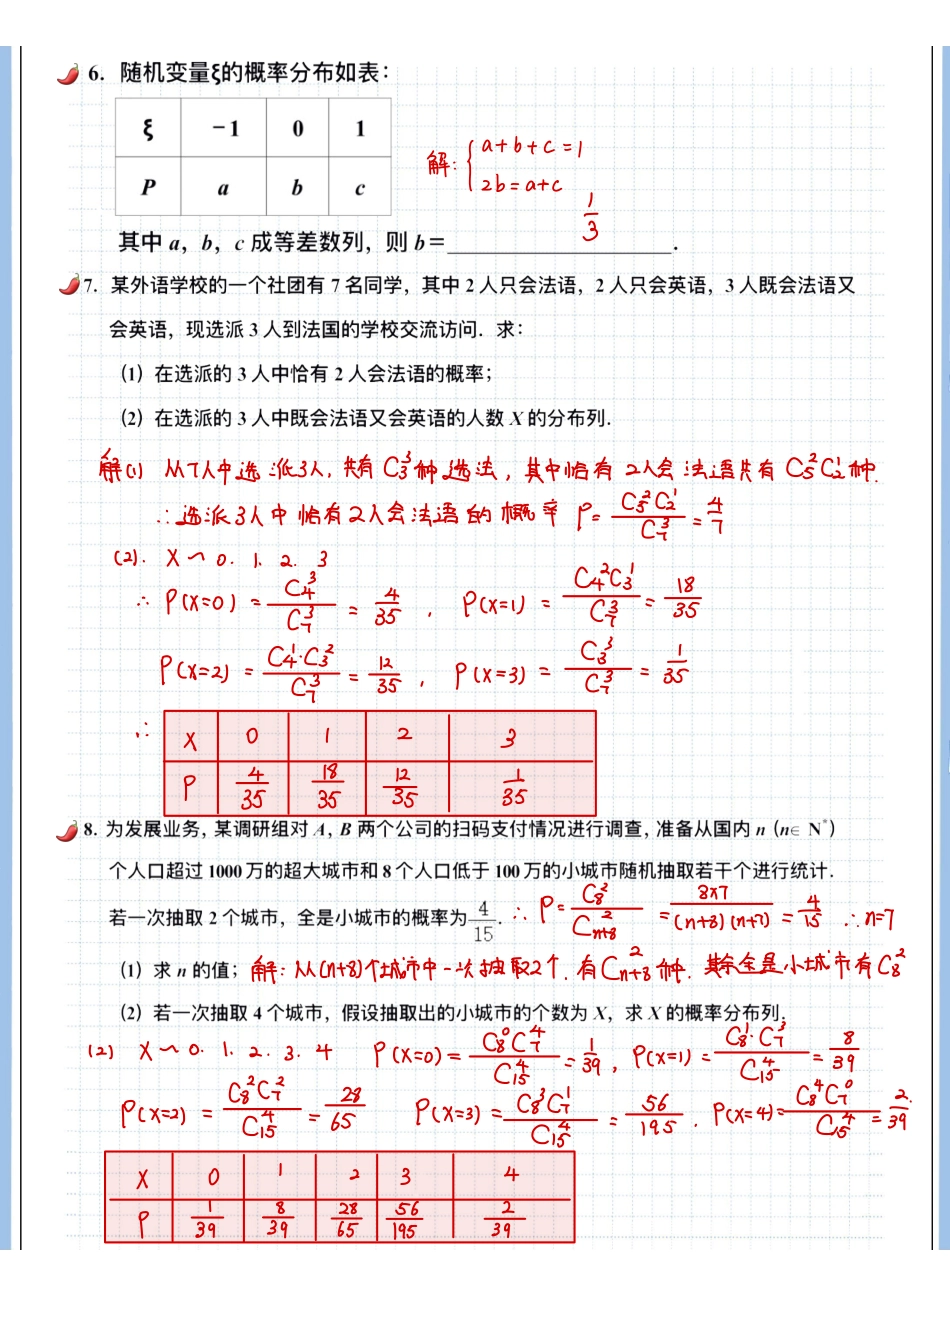 6. 随机变量ξ的概率分布如表：
ξ −1 0 1
P a b c
解: { a+b+c=1
2b=a+c
1/3
其中 a，b，c 成等差数列，则 b＝____________．
7. 某外语学校的一个社团有 7 名同学，其中 2 人只会法语，2 人只会英语，3 人既会法语又
会英语，现选派 3 人到法国的学校交流访问．求：
（1）在选派的 3 人中恰有 2 人会法语的概率；
（2）在选派的 3 人中既会法语又会英语的人数 X 的分布列．
解(1) 从7人中选派3人, 共有 C₃³ 种选法, 其中恰有 2人会法语共有 C₅²C₂¹ 种.
∴选派3人中恰有2人会法语的概率 P= C₅²C₂¹/C₇³ = 4/7
(2). X ~ 0. 1. 2. 3
∴ P(X=0) = C₄³/C₇³ = 4/35 , P(X=1) = C₄²C₃¹/C₇³ = 18/35
P(X=2) = C₄¹·C₃²/C₇³ = 12/35 , P(X=3) = C₃³/C₇³ = 1/35
∴ X 0 1 2 3
P 4/35 18/35 12/35 1/35
8. 为发展业务，某调研组对 A，B 两个公司的扫码支付情况进行调查，准备从国内 n（n∈N*）
个人口超过 1000 万的超大城市和 8 个人口低于 100 万的小城市随机抽取若干个进行统计．
若一次抽取 2 个城市，全是小城市的概率为 4/15． ∴ P= C₈²/Cₙ₊₈² = 8×7/(n+8)(n+7) = 4/15 ∴n=7
（1）求 n 的值； 解: 从(n+8)个城市中一次抽取2个. 有 Cₙ₊₈² 种. 其全是小城市有 C₈²
（2）若一次抽取 4 个城市，假设抽取出的小城市的个数为 X，求 X 的概率分布列．
(2) X ~ 0. 1. 2. 3. 4 P(X=0)= C₈⁰C₇⁴/C₁₅⁴ = 1/39 , P(X=1)= C₈¹·C₇³/C₁₅⁴ = 8/39
P(X=2) = C₈²C₇²/C₁₅⁴ = 28/65 P(X=3)= C₈³C₇¹/C₁₅⁴ = 56/195 . P(X=4)= C₈⁴C₇⁰/C₁₅⁴ = 2/39.
X 0 1 2 3 4
P 1/39 8/39 28/65 56/195 2/39